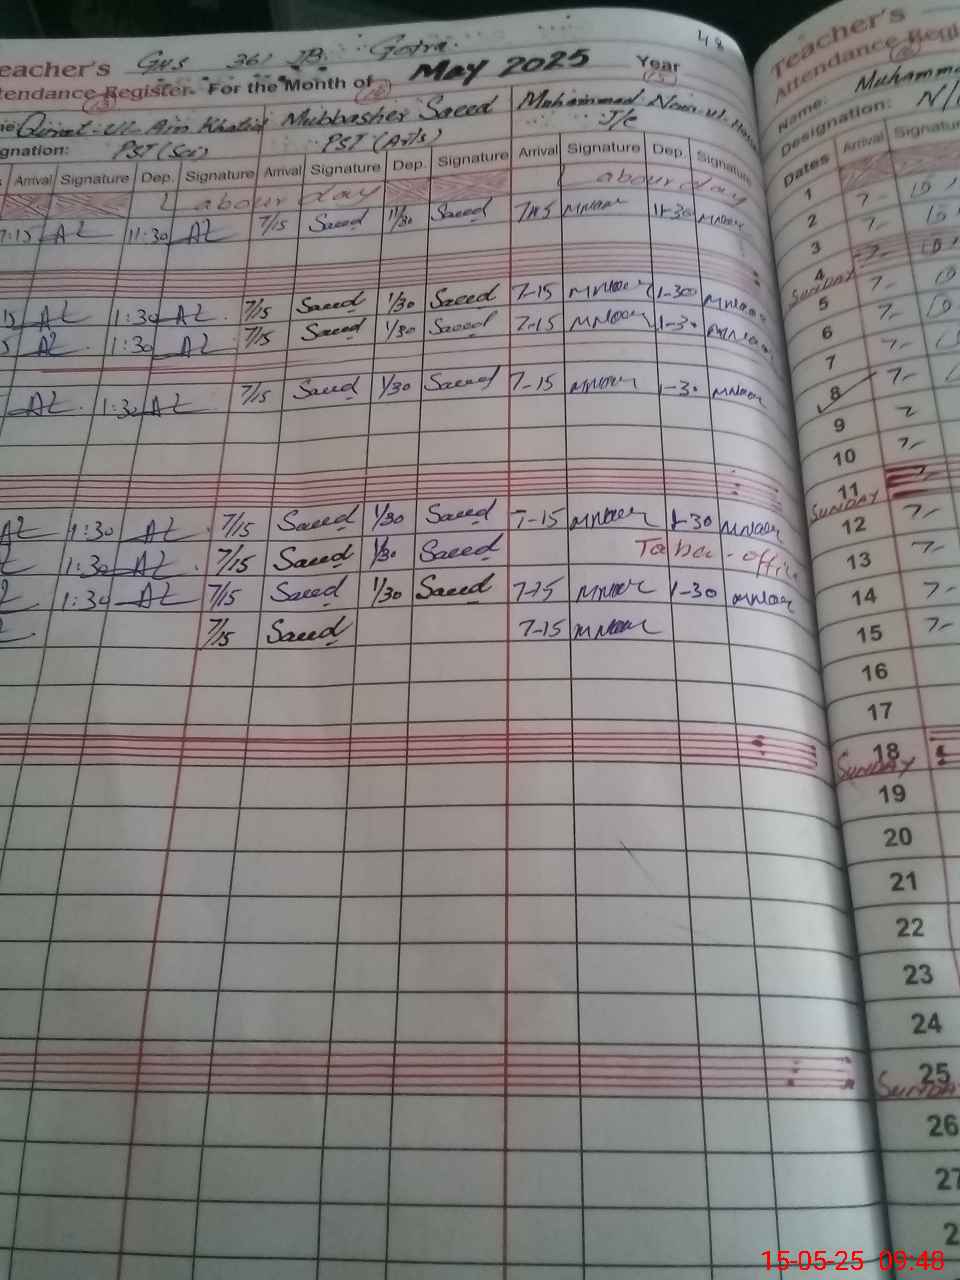 Teacher's GHS 361 JB. Gojra. 48
Attendance Register. For the Month of May 2025 Year
Qurrat-ul-Ain Khalid Mubbasher Saeed Muhammad
gnation: PST (Sci) PST (Arts) J/C
Arrival Signature Dep. Signature Arrival Signature Dep. Signature Arrival Signature Dep. Signature
Labour day Labour day
7:15 AZ 11:30 AZ 7/15 Saeed 11/30 Saeed 7-15 MNoor 11-30 MNoor
15 AZ 1:30 AZ 7/15 Saeed 1/30 Saeed 7-15 MNoor 1-30 MNoor
5 AZ 1:30 AZ 7/15 Saeed 1/30 Saeed 7-15 MNoor 1-30 MNoor
AZ 1:30 AZ 7/15 Saeed 1/30 Saeed 7-15 MNoor 1-30 MNoor
AZ 1:30 AZ 7/15 Saeed 1/30 Saeed 7-15 MNoor 1-30 MNoor
1:30 AZ 7/15 Saeed 1/30 Saeed
1:30 AZ 7/15 Saeed 1/30 Saeed 7-15 MNoor 1-30 MNoor
7/15 Saeed 7-15 MNoor
Teacher's
Attendance Regi
Name: Muhamma
Designation: N/
Dates Arrival Signature
1
2 7-
3 7-
4 SUNDAY 7-
5 7-
6 7-
7 7-
8 7-
9
10 7-
11 SUNDAY
12 7-
13 7-
14 7-
15 7-
16
17
18 SUNDAY
19
20
21
22
23
24
25 SUNDAY
26
27
2
15-05-25 09:48